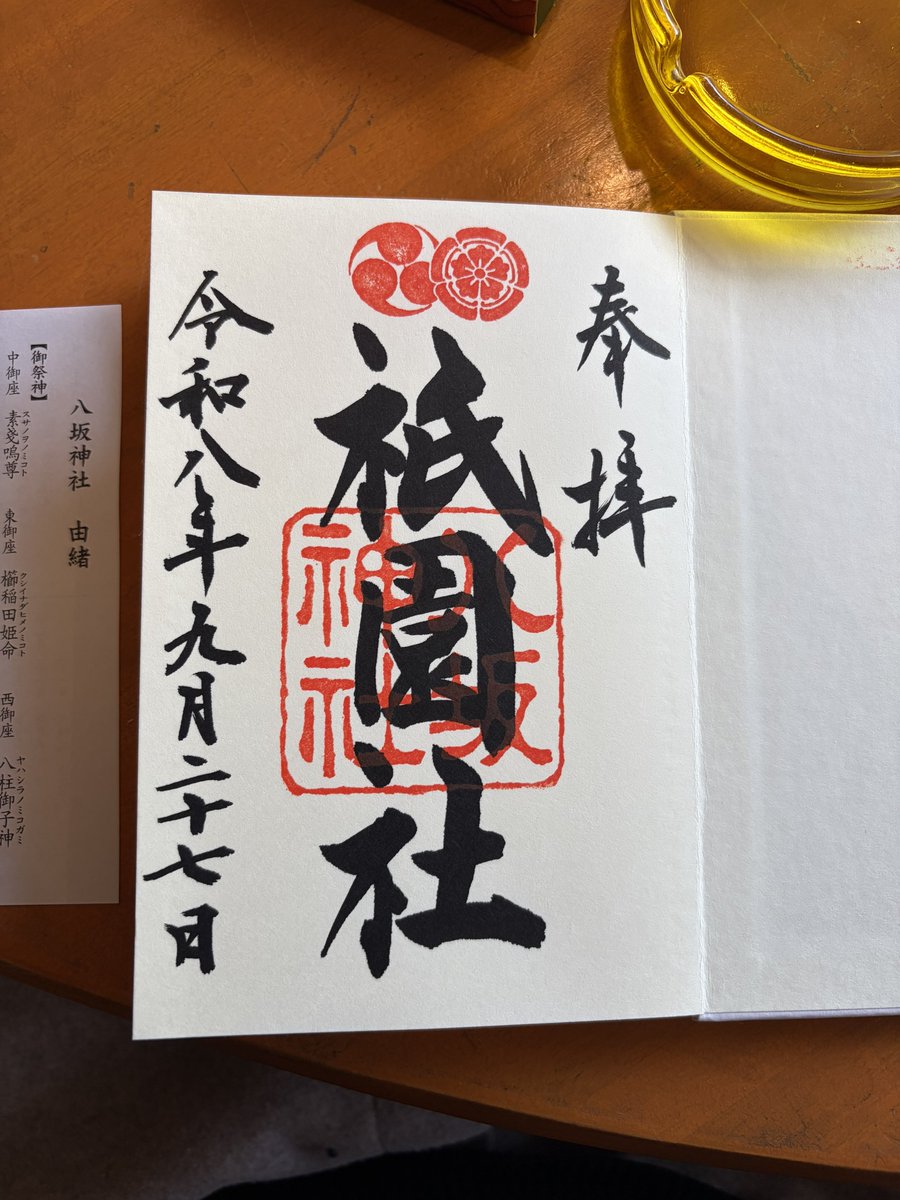 奉拝
祇園社
八坂
神社
令和八年九月二十七日
八坂神社 由緒
【御祭神】
中御座 素戔嗚尊 東御座 櫛稲田姫命 西御座 八柱御子神
スサノヲノミコト クシイナダヒメノミコト ヤハシラノミコガミ